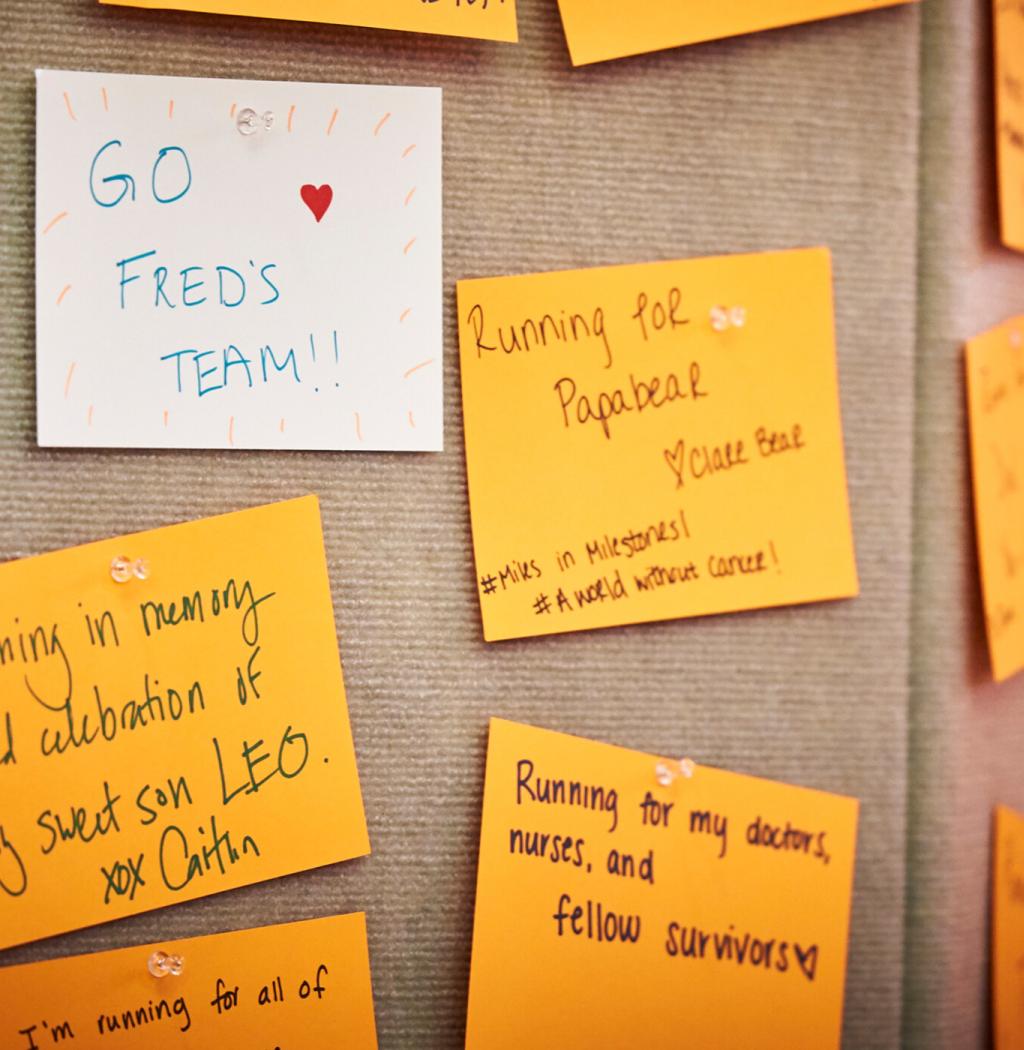 GO
FRED'S
TEAM!!
Running for
Papabear
♡Clare Bear
#Miles in Milestones!
#A world without cancer!
ning in memory
d celebration of
y sweet son LEO.
xox Caitlin
Running for my doctors,
nurses, and
fellow survivors♡
I'm running for all of